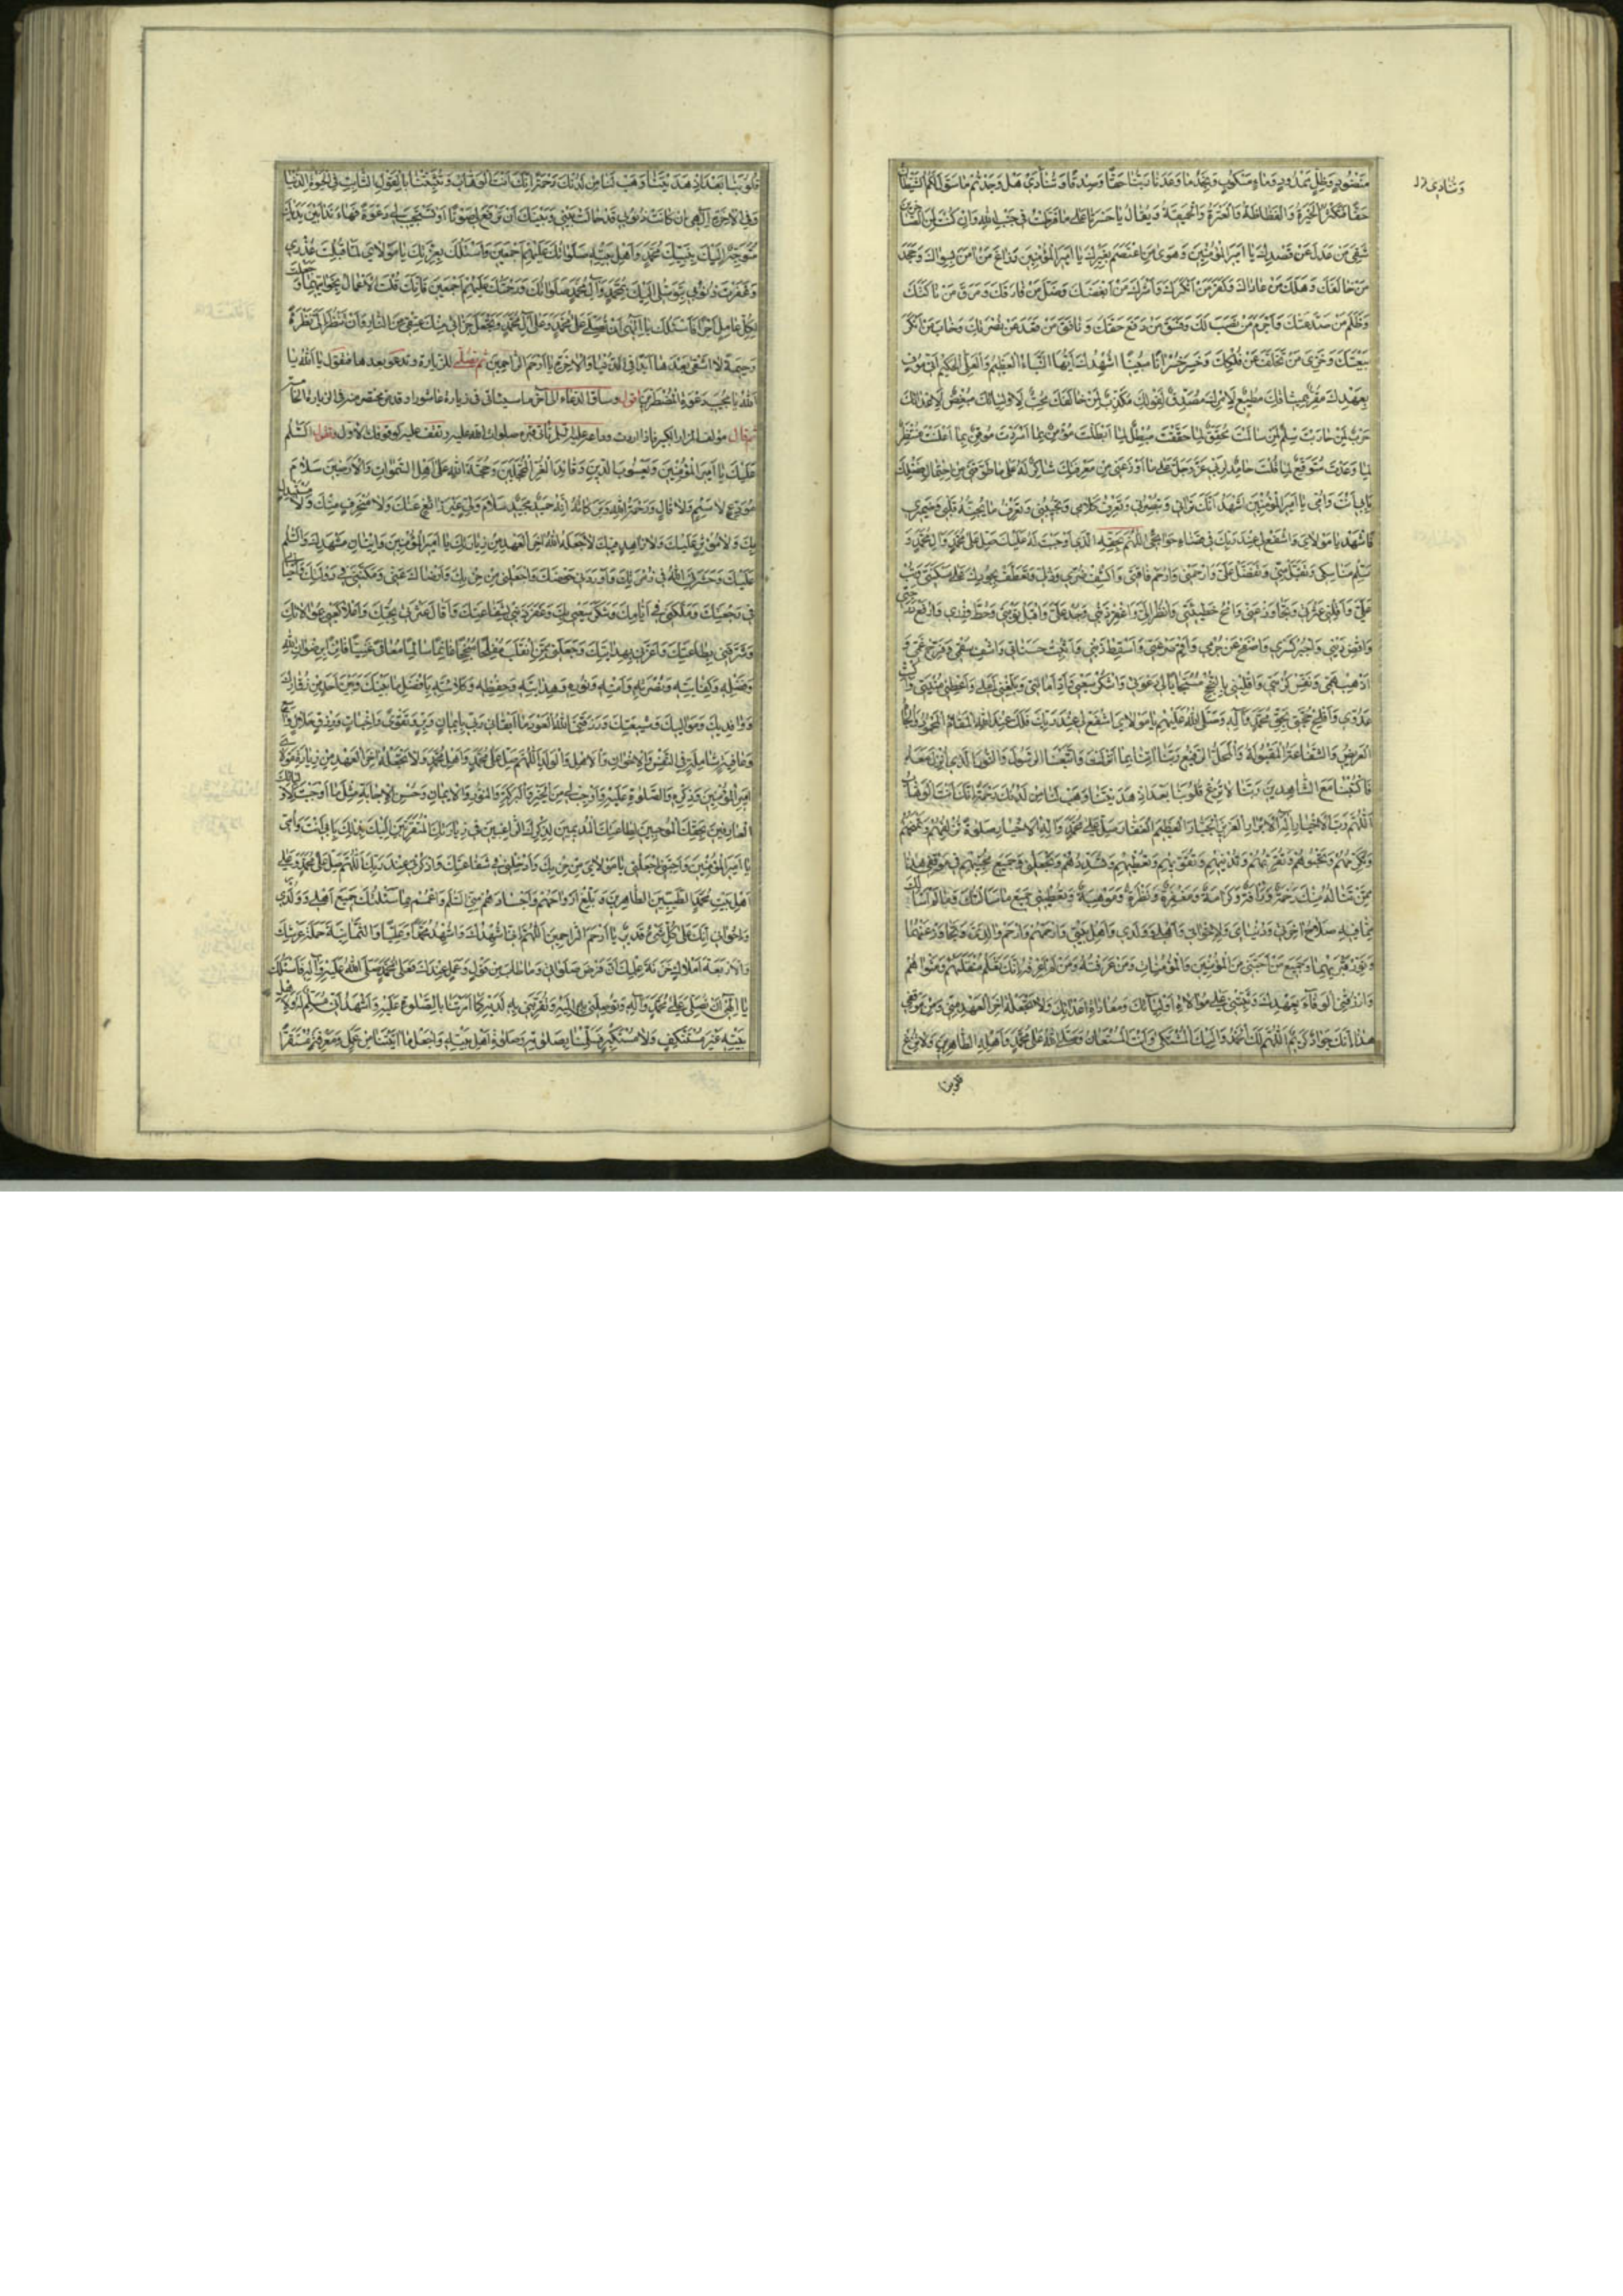 منضود وظل ممدود وماء مسكوب ونجد ما وعدنا ربنا حقا وصدقا وننادي هل وجدتم ما سول لكم الشيطان
حقا فتكثر الحيرة والفظاظة والعثرة والحميقة ويقال يا حسرتا على ما فرطت في جنب الله وان كنت لمن الساخرين
شقي من عدل عن قصدك يا امير المؤمنين وهوى من اعتصم بغيرك يا امير المؤمنين وزاغ من امن بسواك وجحد
من خالفك وهلك من عاداك وكفر من انكرك واشرك من ابغضك وضل من فارقك ومرق من ناكثك
وظلم من صد عنك واجرم من نصب لك وفسق من دفع حقك ونافق من قعد عن نصرتك وخاب من انكر
بيعتك وخزي من تخلف عن فلكك وخسر خسرانا مبينا اشهدك ايها النباء العظيم والعلي الحكيم اني موف
بعهدك مقر بميثاقك مطيع لامرك مصدق لقولك مكذب لمن خالفك محب لاوليائك مبغض لاعدائك
حرب لمن حاربت سلم لمن سالمت محقق لما حققت مبطل لما ابطلت مؤمن بما اسررت موقن بما اعلنت منتظر
لما وعدت متوقع لما قلت حامد لربي عز وجل على ما اوزعني من معرفتك شاكر له على ما طوقني من احتمال فضلك
بابي انت وامي يا امير المؤمنين اشهد انك تراني وتبصرني وتعرف كلامي وتجيبني وتعرف ما يجنه قلبي وضميري
فاشهد يا مولاي واشفع لي عند ربك في قضاء حوائجي اللهم بحقه الذي اوجبت له عليك صل على محمد وال محمد و
سلم مناسكي وتقبل مني وتفضل علي وارحمني وارحم فاقتي واكشف ضري وذلي وتعطف بجودك على مسكنتي وتب
علي واقلني عثرتي وتجاوز عني وامح خطيئتي وانظر الي واغفر ذنبي وجد علي واقبل توبتي وحط وزري وارفع درجتي
واقض ديني واجبر كسري واصفح عن جرمي واقم صرعتي واسقط ذنبي واثبت حسناتي واشف سقمي وفرج غمي و
اذهب همي ونفس كربتي واقلبني بالنجح مستجابا لي دعوتي واشكر سعيي واد امانتي وبلغني املي واعطني منيتي واكبت
عدوي وافلج حجتي بحق محمد واله وصلى الله عليهم يا مولاي اشفع لي عند ربك فلك عند الله المقام المحمود والجاه
العريض والشفاعة المقبولة والمحل الرفيع ربنا امنا بما انزلت واتبعنا الرسول والنور الذي انزل معه
فاكتبنا مع الشاهدين ربنا لا تزغ قلوبنا بعد اذ هديتنا وهب لنا من لدنك رحمة انك انت الوهاب
اللهم رب الاخيار اله الابرار العزيز الجبار العظيم الغفار صل على محمد واله الاخيار صلوة تزلفهم وتمنحهم
وتكرمهم وتحبوهم وتقربهم وتدنيهم وتقويهم وتعطيهم وتسددهم وتجعلني وجميع محبيهم في موقفي هذا
ممن تناله منك رحمة ورافة وكرامة ومغفرة ونظرة وموهبة وتعطيني جميع ما سالتك وما لم اسالك
مما فيه صلاح اخرتي ودنياي ولاخواني واهلي وولدي واهل بيتي وارحمهم وارحم والدي وتجاوز عنهما
ونور قبريهما وجميع من احبني من المؤمنين والمؤمنات ومن عرفته ومن لم اعرفه انك تعلم منقلبهم ومثواهم
وارزقني الوفاء بعهدك وثبتني على موالاة اوليائك ومعاداة اعدائك ولا تجعله اخر العهد مني ومن موقفي
هذا انك جواد كريم اللهم لك الحمد واليك المشتكى وانت المستعان وصلى الله على محمد واهله الطاهرين ولا تزغ
قلوبنا
قلوبنا بعد اذ هديتنا وهب لنا من لدنك رحمة انك انت الوهاب وثبتنا بالقول الثابت في الحيوة الدنيا
وفي الاخرة الهي ان كانت ذنوبي قد حالت بيني وبينك ان ترفع لي صوتا او تستجيب لي دعوة فها انا ذا بين يديك
متوجه اليك بنبيك محمد واهل بيته صلواتك عليهم اجمعين واسئلك بعزتك يا مولاي لما قبلت عذري
وغفرت ذنوبي بتوسلي اليك بمحمد وآل محمد صلواتك ورحمتك عليهم اجمعين فانك قلت الاعمال بخواتيمها وجعلت
لكل عامل اجرا فاسئلك يا الهي ان تصلي على محمد وعلى آل محمد وتجعل جزائي منك عتقي من النار وان تنظر الي نظرة
رحيمة لا اشقى بعدها ابدا في الدنيا والاخرة يا ارحم الراحمين ثم تصلي للزيارة وتدعو بعدها فتقول يا الله يا
الله يا مجيب دعوة المضطرين اقول وساق الدعاء الى آخر ما سياتي في زيارة عاشورا
ثم قال مولف المزار الكبير فاذا اردت وداعه عليه السلم فائت قبره صلوات الله عليه وتقف عليه كوقوفك الاول وتقول السلم
عليك يا امير المؤمنين ويعسوب الدين وقائد الغر المحجلين وحجة الله على اهل السموات والارضين سلام
مودع لا سئم ولا قال ورحمة الله وبركاته انه حميد مجيد سلام ولي غير زائغ عنك ولا منحرف منك ولا مستبدل
بك ولا مؤثر عليك ولا زاهد فيك لا جعله الله اخر العهد من زيارتك يا امير المؤمنين واتيان مشهدك والسلم
عليك وحشرني الله في زمرتك واوردني حوضك واجعلني من حزبك وارضاك عني ومكنني في دولتك واحياني
في رجعتك وملكني في ايامك وشكر سعيي بك وغفر ذنبي بشفاعتك واقال عثرتي بحبك واعلا كعبي بموالاتك
وشرفني بطاعتك واعزني بهدايتك وجعلني ممن انقلب مفلحا منجحا غانما سالما معافا غنيا فائزا برضوان الله
وفضله وكفايته ونصرته وامنه ونوره وهدايته وحفظه وكلائته بافضل ما ينقلب به احد من زوارك
ووافديك ومواليك وشيعتك ورزقني الله العود ما ابقاني ربي بايمان وبر وتقوى واخبات ورزق حلال واسع
وعافية شاملة في النفس والاخوان والاهل والولد اللهم صل على محمد واهل محمد ولا تجعله اخر العهد من زيارة مولاي
امير المؤمنين وذكره والصلوة عليه واوجب لي من الخير والبركة والنور والايمان وحسن الاجابة مثل ما اوجبت لاوليائك
العارفين بحقك الموجبين لطاعتك المديمين لذكرك الراغبين في زيارتك المتقربين اليك بذلك بابي انت وامي
يا امير المؤمنين واجعلني يا مولاي من حزبك وادخلني في شفاعتك واذكرني عند ربك اللهم صل على محمد وعلى
اهل بيت محمد الطيبين الطاهرين وابلغ ارواحهم واجسادهم مني السلم واعمم بما سئلتك جميع اهلي وولدي
واخواني انك على كل شيء قدير يا ارحم الراحمين اللهم اني اشهدك واشهد محمدا وعليا والثمانية حملة عرشك
والاربعة املاك خزنة علمك ان فرض صلواتي
يا الهي ان تصلي على محمد وآله وتوصلني به اليه وتقربني به لديه كما امرتنا بالصلوة عليه واشهد اني مسلم له ولاهل
بيته غير مستنكف ولا مستكبر فسلمنا بصلوته وصلوة اهل بيته واجعل ما اتيتنا من عمل ومعرفة مستقرا